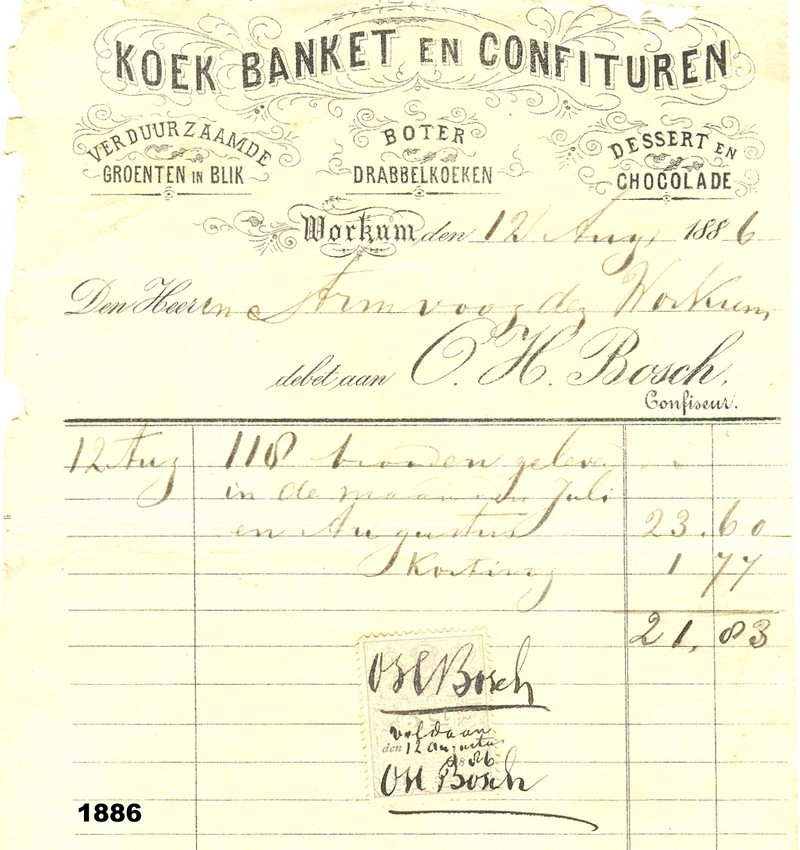 KOEK BANKET EN CONFITUREN
VERDUURZAAMDE
GROENTEN IN BLIK
BOTER
DRABBELKOEKEN
DESSERT EN
CHOCOLADE
Workum, den 12 Aug. 1886
Den Heeren Armvoogden Workum,
debet aan O. H. Bosch,
Confiseur.
12 Aug 118 brooden gelever
in de maanden Juli
en Augustus 23.60
Korting 1 77
21.83
OH Bosch
voldaan
den 12 augustus
1886
OH Bosch
1886